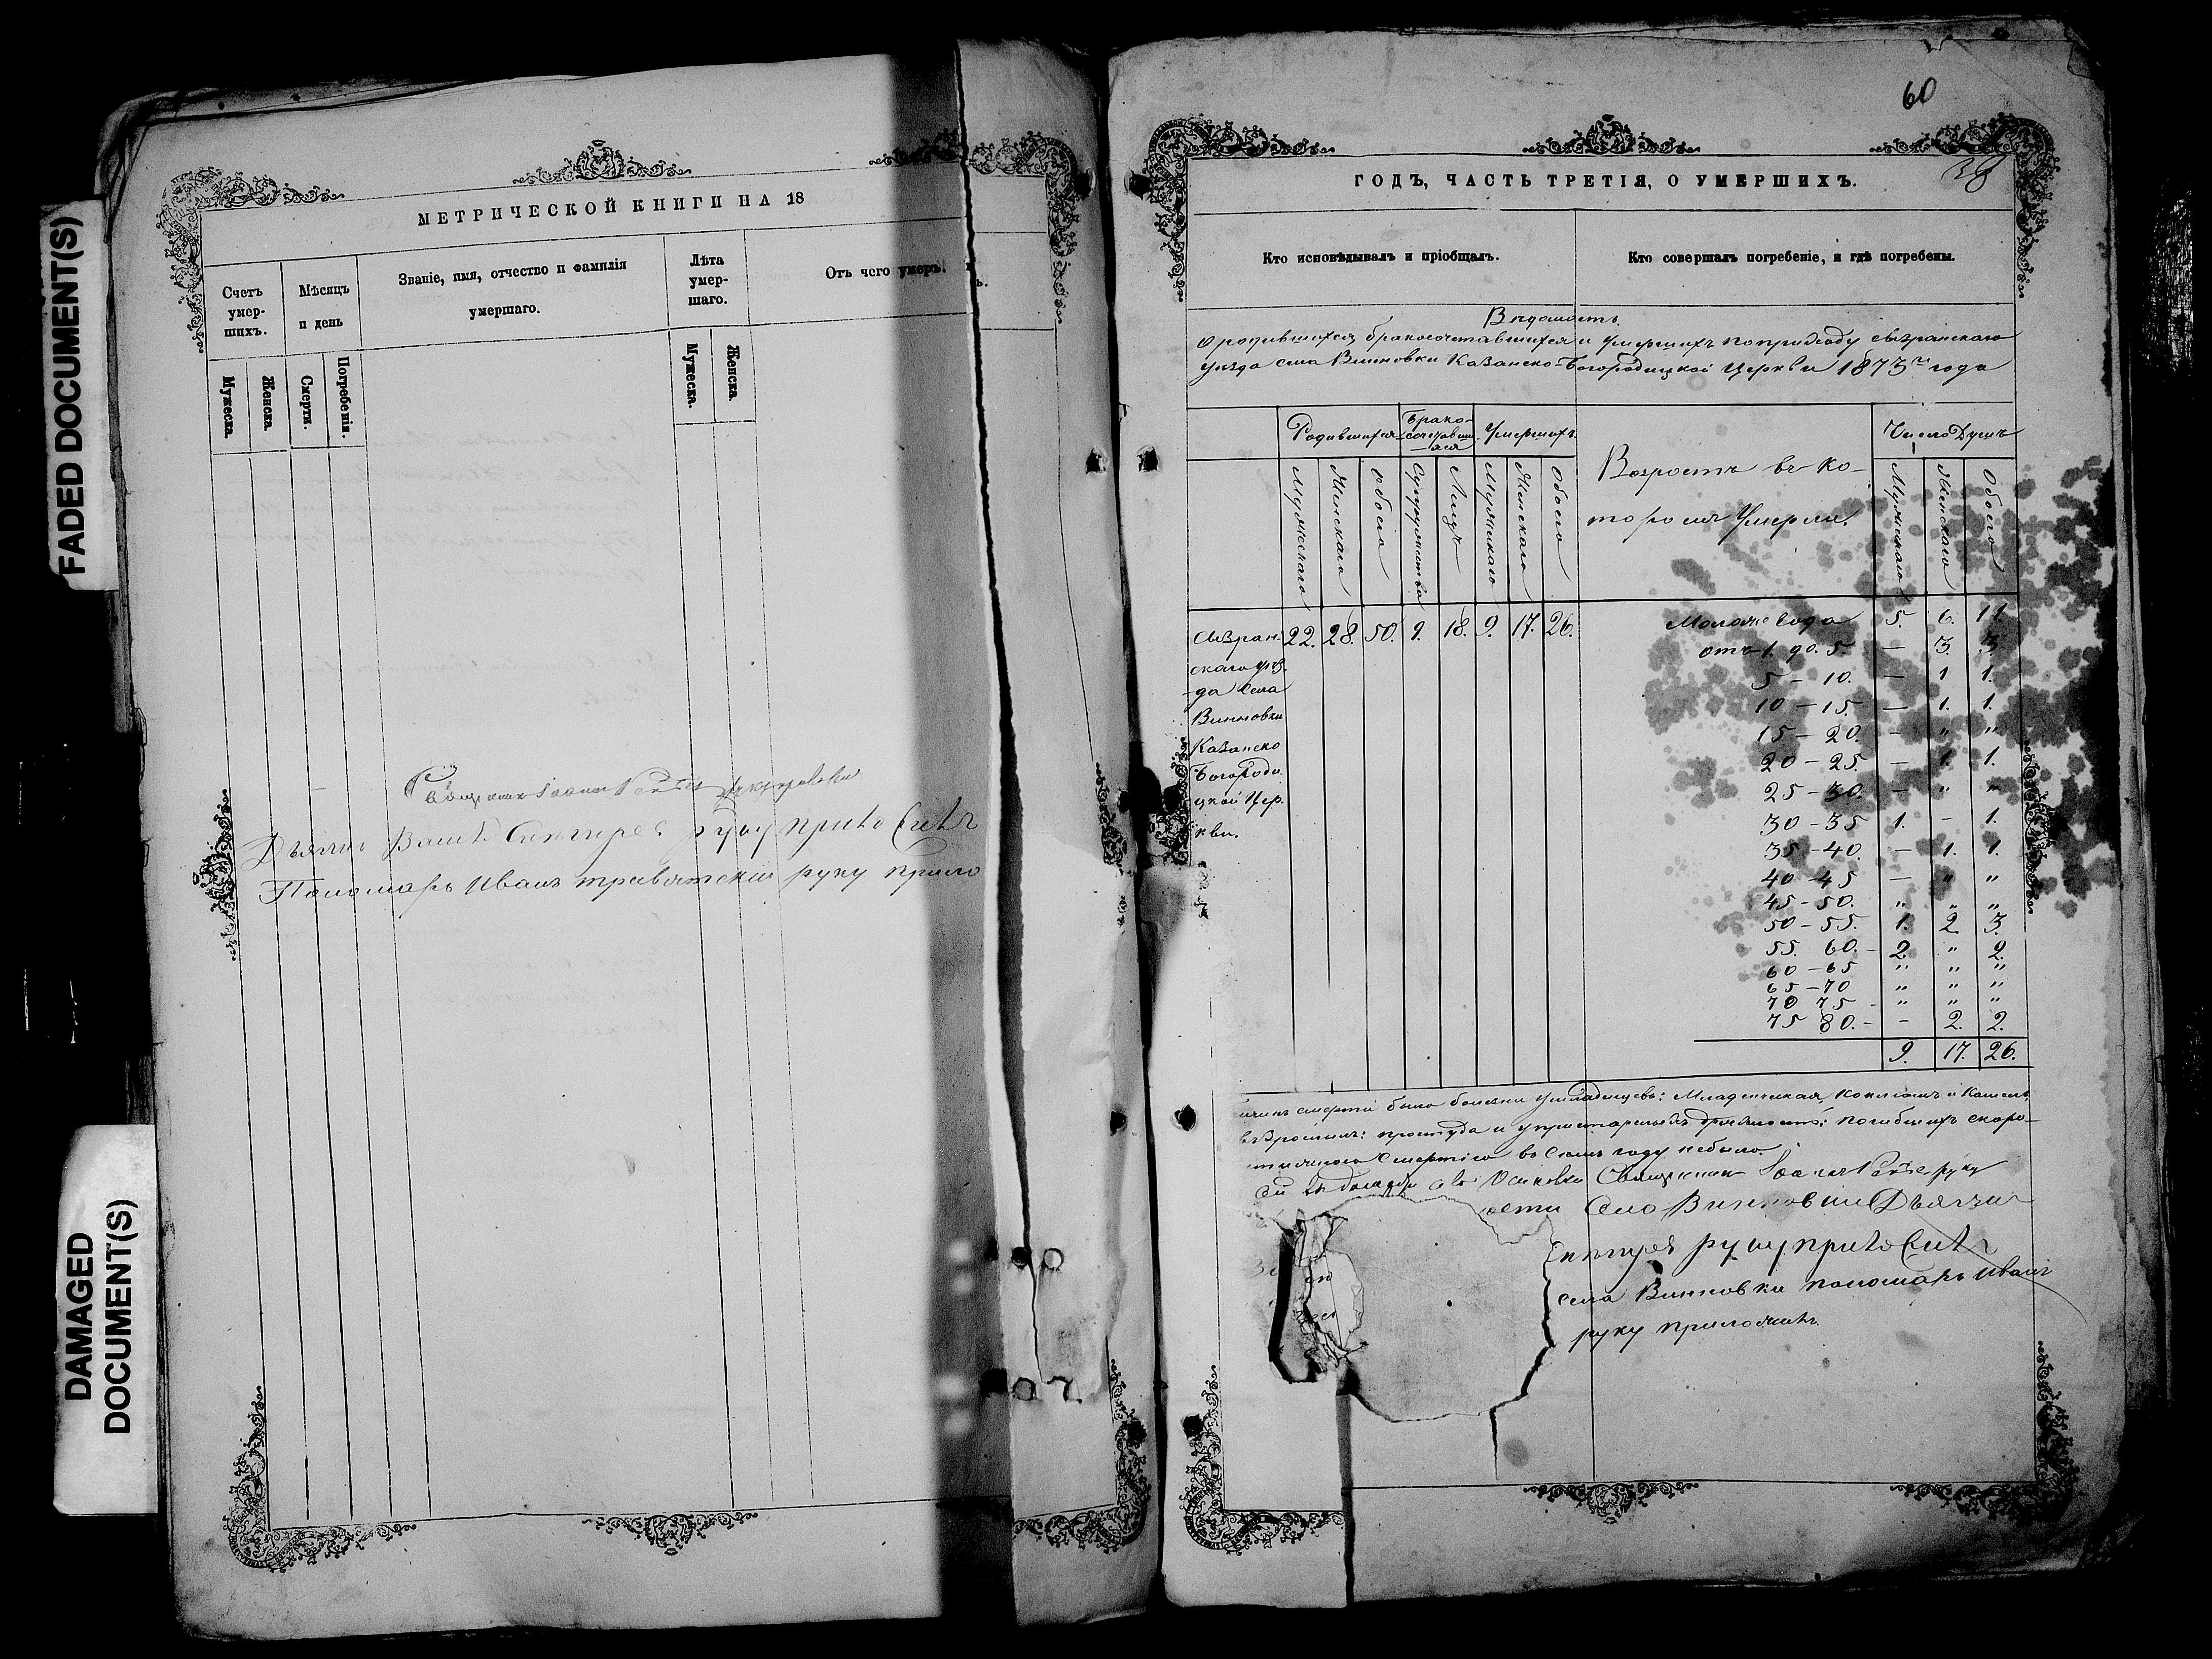 FADED DOCUMENT(S)
DAMAGED
DOCUMENT(S)
МЕТРИЧЕСКОЙ КНИГИ НА 18
Счетъ умер-шихъ.
Мѣсяцъ и день
Званіе, имя, отчество и фамилія умершаго.
Лѣта умер-шаго.
Отъ чего умеръ.
Мужеска.
Женска.
Смерти.
Погребенія.
Мужеска.
Женска.
руку приложилъ
Пономарь Иванъ руку прило
60
38
ГОДЪ, ЧАСТЬ ТРЕТІЯ, О УМЕРШИХЪ.
Кто исповѣдывалъ и пріобщалъ.
Кто совершалъ погребеніе, и гдѣ погребены.
Вѣдомость
о родившихся, бракосочетавшихся и умершихъ по приходу сызранскаго
уѣзда села Винновки Казанско-Богородицкой Церкви 1873го года
Родившихся
Брако-сочетавши-хся
Умершихъ
Возрастъ въ ко-
торомъ Умерли.
Число Душъ
Мужескаго
Женскаго
Обоего
Супружества
Лицъ
Мужескаго
Женскаго
Обоего
Мужескаго
Женскаго
Обоего
Сызран- 22. 28. 50. 9. 18. 9. 17. 26.
скаго уѣз-
-да Села
Винновки
Казанско
Богороди
цкой Цер.
кви.
Моложе года 5. 6. 11
отъ 1. до. 5. — 3. 3.
5 — 10. — 1 1.
10 — 15. — 1. 1.
15 — 20. — " "
20 — 25. — 1. 1.
25 — 30. — " "
30 — 35 1. — 1.
35 — 40. — 1. 1.
40 — 45 — " "
45 — 50. " " "
50 — 55. 1. 2. 3.
55. 60. — 2. " 2.
60 — 65 " " "
65 — 70 " " "
70 75 - " " "
75 80. - — 2. 2.
9. 17. 26.
смерти были болезни у младенцевъ: Младенческая, и Кашель,
простуда и погибшихъ скоро-
смертію въ семъ году небыло.
Священник руку
Село Дьячик
руку приложилъ
села Винновки пономарь Иванъ
руку приложилъ